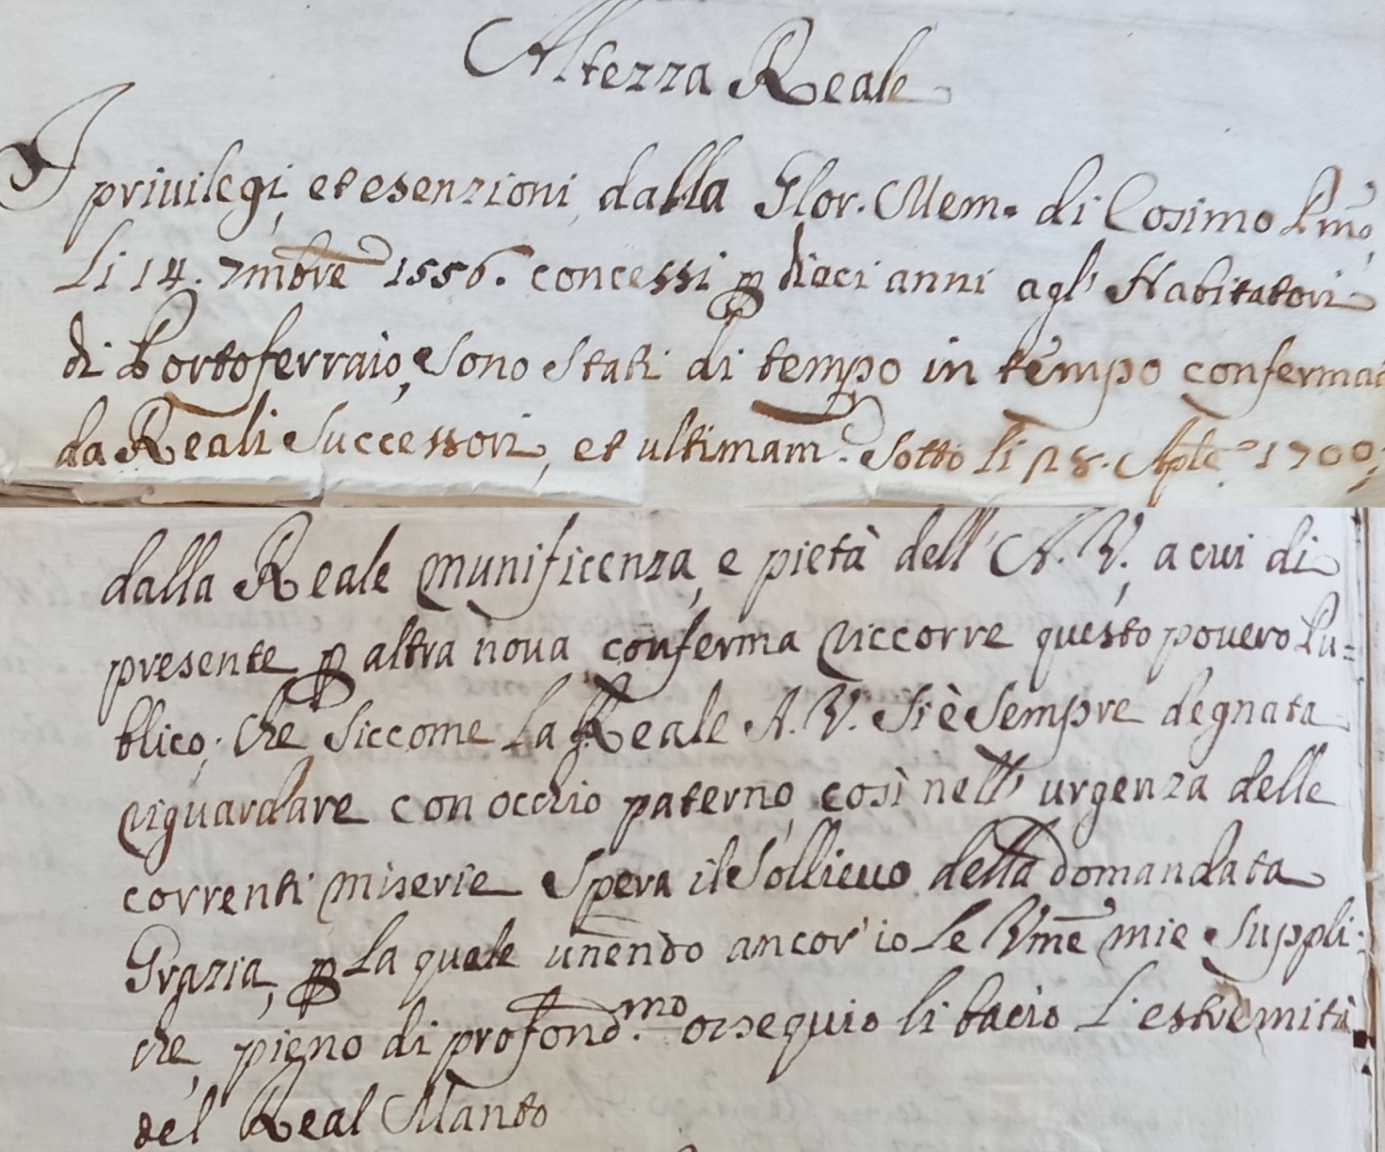 Altezza Reale
I privilegi, et esenzioni, dalla Glor. Mem. di Cosimo Pmo,
li 14. 7mbre 1556. concessi p dieci anni agl' Habitatori
di Portoferraio, sono stati di tempo in tempo confermati
da Reali Successori, et ultimam.e sotto li 28. Aple 1700,
dalla Reale munificenza, e pietà dell' A. V., a cui di
presente p altra nova conferma riccorre questo povero Pu=
blico; che siccome la Reale A. V. si è sempre degnata
riguardare con occhio paterno, così nell' urgenza delle
correnti miserie spera il sollievo della domandata
Grazia, p la quale unendo ancor' io le Vme mie suppli:
che, pieno di profond.mo ossequio li bacio l'estremità
del Real Manto